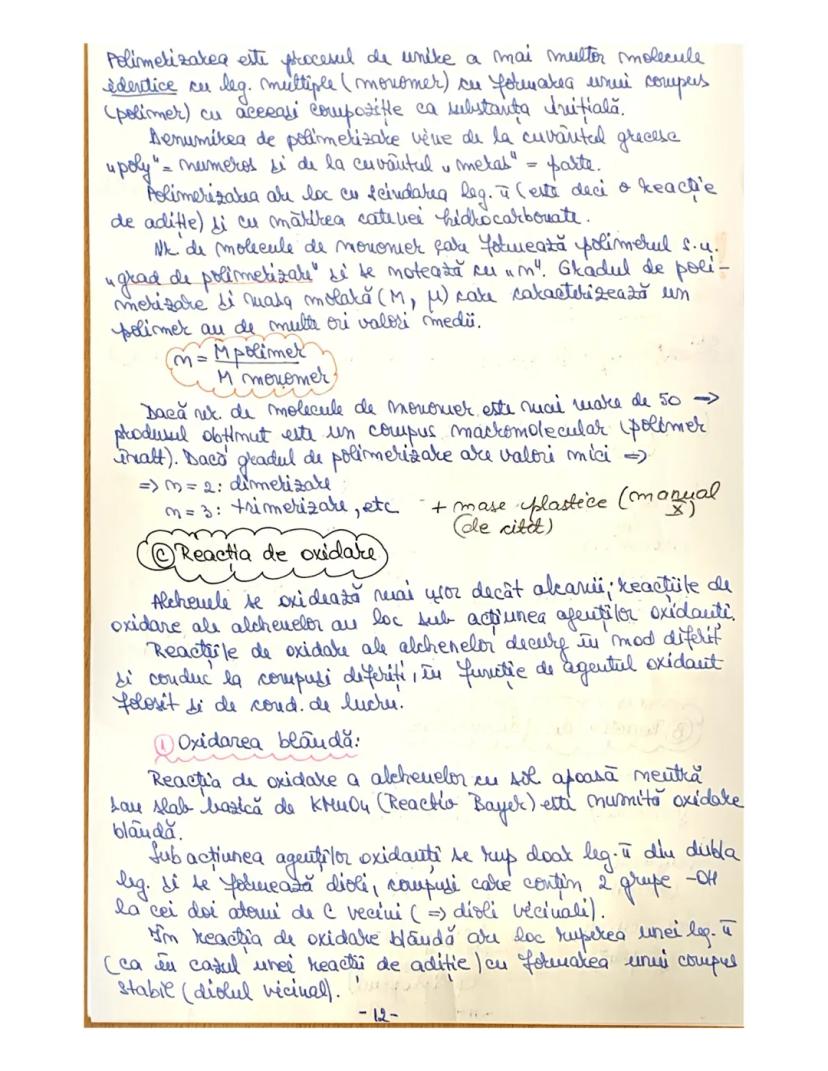 Polimerizarea este procesul de unire a mai multor molecule
identice cu leg. multiple (monomer) cu formarea unui compus
(polimer) cu aceeași compoziție ca substanța inițială.
Denumirea de polimerizare vine de la cuvântul grecesc
„poly" = numeros și de la cuvântul „meras" = parte.
Polimerizarea are loc cu scindarea leg. π (este deci o reacție
de adiție) și cu mărirea catenei hidrocarbonate.
Nr. de molecule de monomer care formează polimerul s.n.
„grad de polimerizare" și se notează cu „n". Gradul de poli-
merizare și masa molară (M, μ) care caracterizează un
polimer au de multe ori valori medii.
n = M polimer
M monomer
Dacă nr. de molecule de monomer este mai mare de 50 →
produsul obținut este un compus macromolecular (polimer
înalt). Dacă gradul de polimerizare are valori mici ⇒
⇒ n = 2: dimerizare
n = 3: trimerizare, etc + mase plastice (manual
X)
(de citit)
Ⓒ Reacția de oxidare
Alchenele se oxidează mai ușor decât alcanii; reacțiile de
oxidare ale alchenelor au loc sub acțiunea agenților oxidanți.
Reacțiile de oxidare ale alchenelor decurg în mod diferit
și conduc la compuși diferiți, în funcție de agentul oxidant
folosit și de cond. de lucru.
① Oxidarea blândă:
Reacția de oxidare a alchenelor cu sol. apoasă neutră
sau slab bazică de KMnO4 (Reactiv Bayer) este numită oxidare
blândă.
Sub acțiunea agenților oxidanți se rup doar leg. π din dubla
leg. și se formează dioli, compuși care conțin 2 grupe -OH
la cei doi atomi de C vecini (⇒ dioli vicinali).
În reacția de oxidare blândă are loc ruperea unei leg. π
(ca în cazul unei reacții de adiție) cu formarea unui compus
stabil (diolul vicinal).
- 12 -